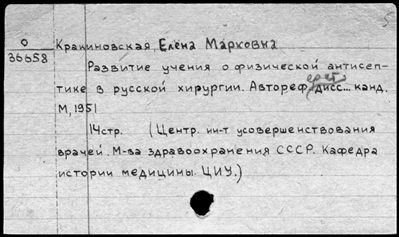 О Кракиновская, Елена Марковна
36658
Развитие учения о физической антисеп-
тике в русской хирургии. Автореферат дисс... канд.
М, 1951
14 стр. (Центр. ин-т усовершенствования
врачей. М-ва здравоохранения СССР. Кафедра
истории медицины. ЦИУ.)